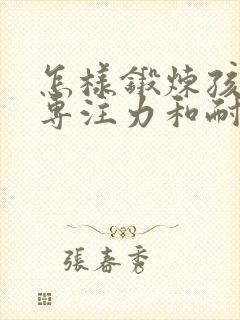 怎樣鍛煉孩
專注力和耐
張春秀